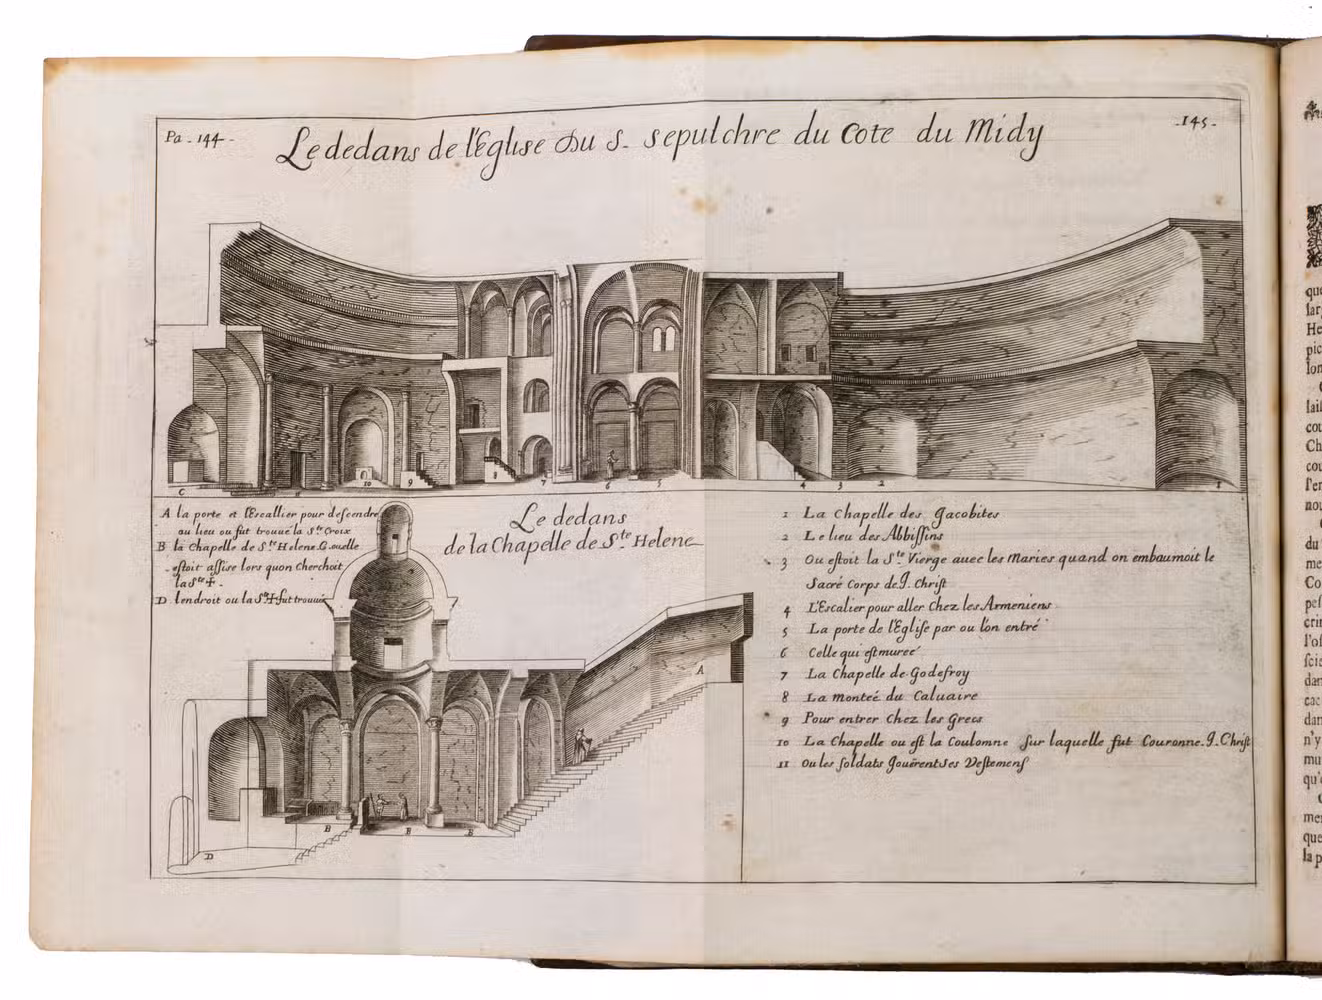 Pa. 144.
Le dedans de l'Eglise du S. sepulchre du cote du Midy
.145.
A la porte et l'escallier pour descendre
au lieu ou fut trouué la S.te Croix
B la Chapelle de S.te Helene G. ouelle
estoit assise lors quon Cherchoit
la S.te ✝.
D lendroit ou la S.te ✝ fut trouuée
Le dedans
de la Chapelle de S.te Helene
1 La Chapelle des Jacobites
2 Le lieu des Abbissins
3 Ou estoit la S.te Vierge auec les Maries quand on embaumoit le
Sacré Corps de J. Christ
4 L'Escalier pour aller Chez les Armeniens
5 La porte de l'Eglise par ou l'on entre
6 Celle qui est mureé
7 La Chapelle de Godefroy
8 La monteé du Caluaire
9 Pour entrer Chez les Grecs
10 La Chapelle ou est la Coulomne sur laquelle fut Couronne. J. Christ
11 Ou les soldats Jouërent ses Vestemens
C
11
10
9
8
7
6
5
4
3
2
1
A
B
B
B
D
que
He
pic
lon
lais
cou
Ch
cou
l'en
nou
du
me
Co
pes
crin
l'of
scie
dan
cac
dan
n'y
mu
qu'
mer
que
la p